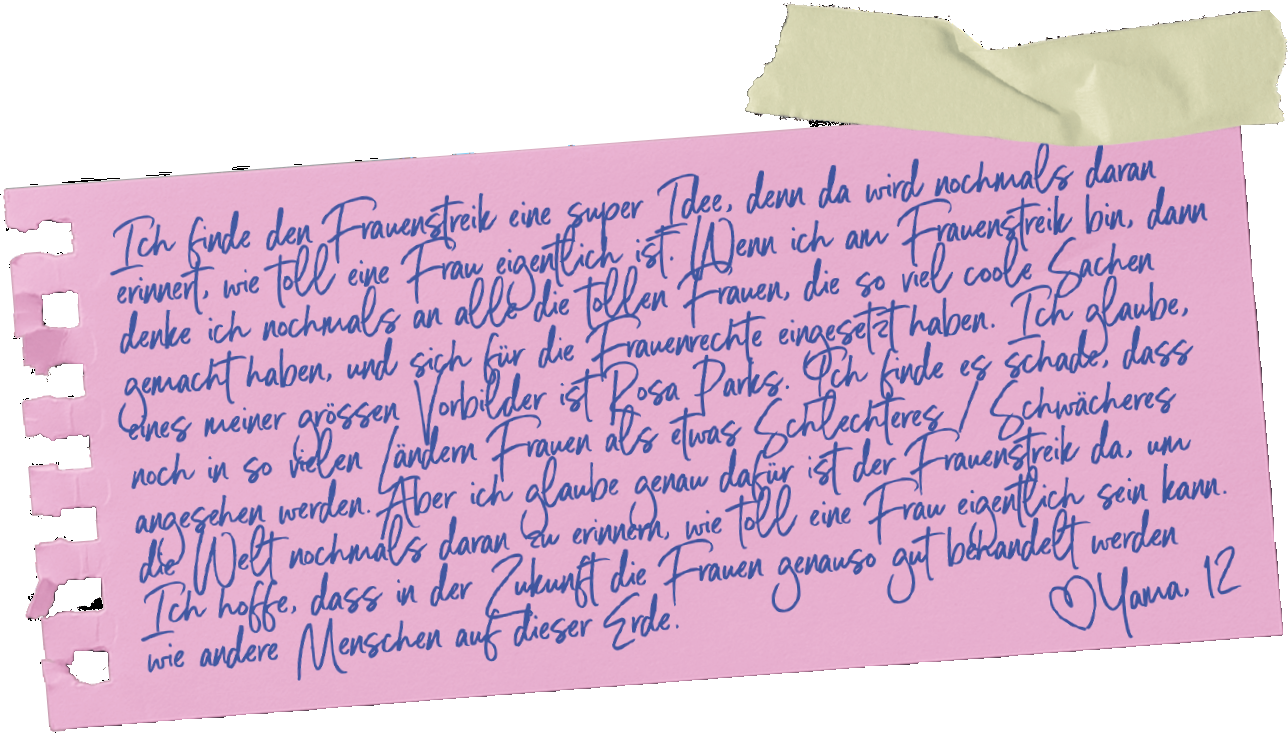 Ich finde den Frauenstreik eine super Idee, denn da wird nochmals daran
erinnert, wie toll eine Frau eigentlich ist. Wenn ich am Frauenstreik bin, dann
denke ich nochmals an alle die tollen Frauen, die so viel coole Sachen
gemacht haben, und sich für die Frauenrechte eingesetzt haben. Ich glaube,
eines meiner grössen Vorbilder ist Rosa Parks. Ich finde es schade, dass
noch in so vielen Ländern Frauen als etwas Schlechteres / Schwächeres
angesehen werden. Aber ich glaube genau dafür ist der Frauenstreik da, um
die Welt nochmals daran zu erinnern, wie toll eine Frau eigentlich sein kann.
Ich hoffe, dass in der Zukunft die Frauen genauso gut behandelt werden
wie andere Menschen auf dieser Erde.
♡Yama, 12